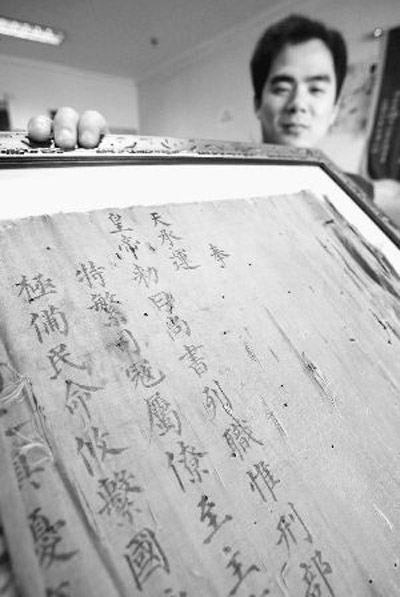 奉
天承運
皇帝勅曰尚書列職惟刑部
特繁司冠屬僚至主
極備民命攸繫國
憂